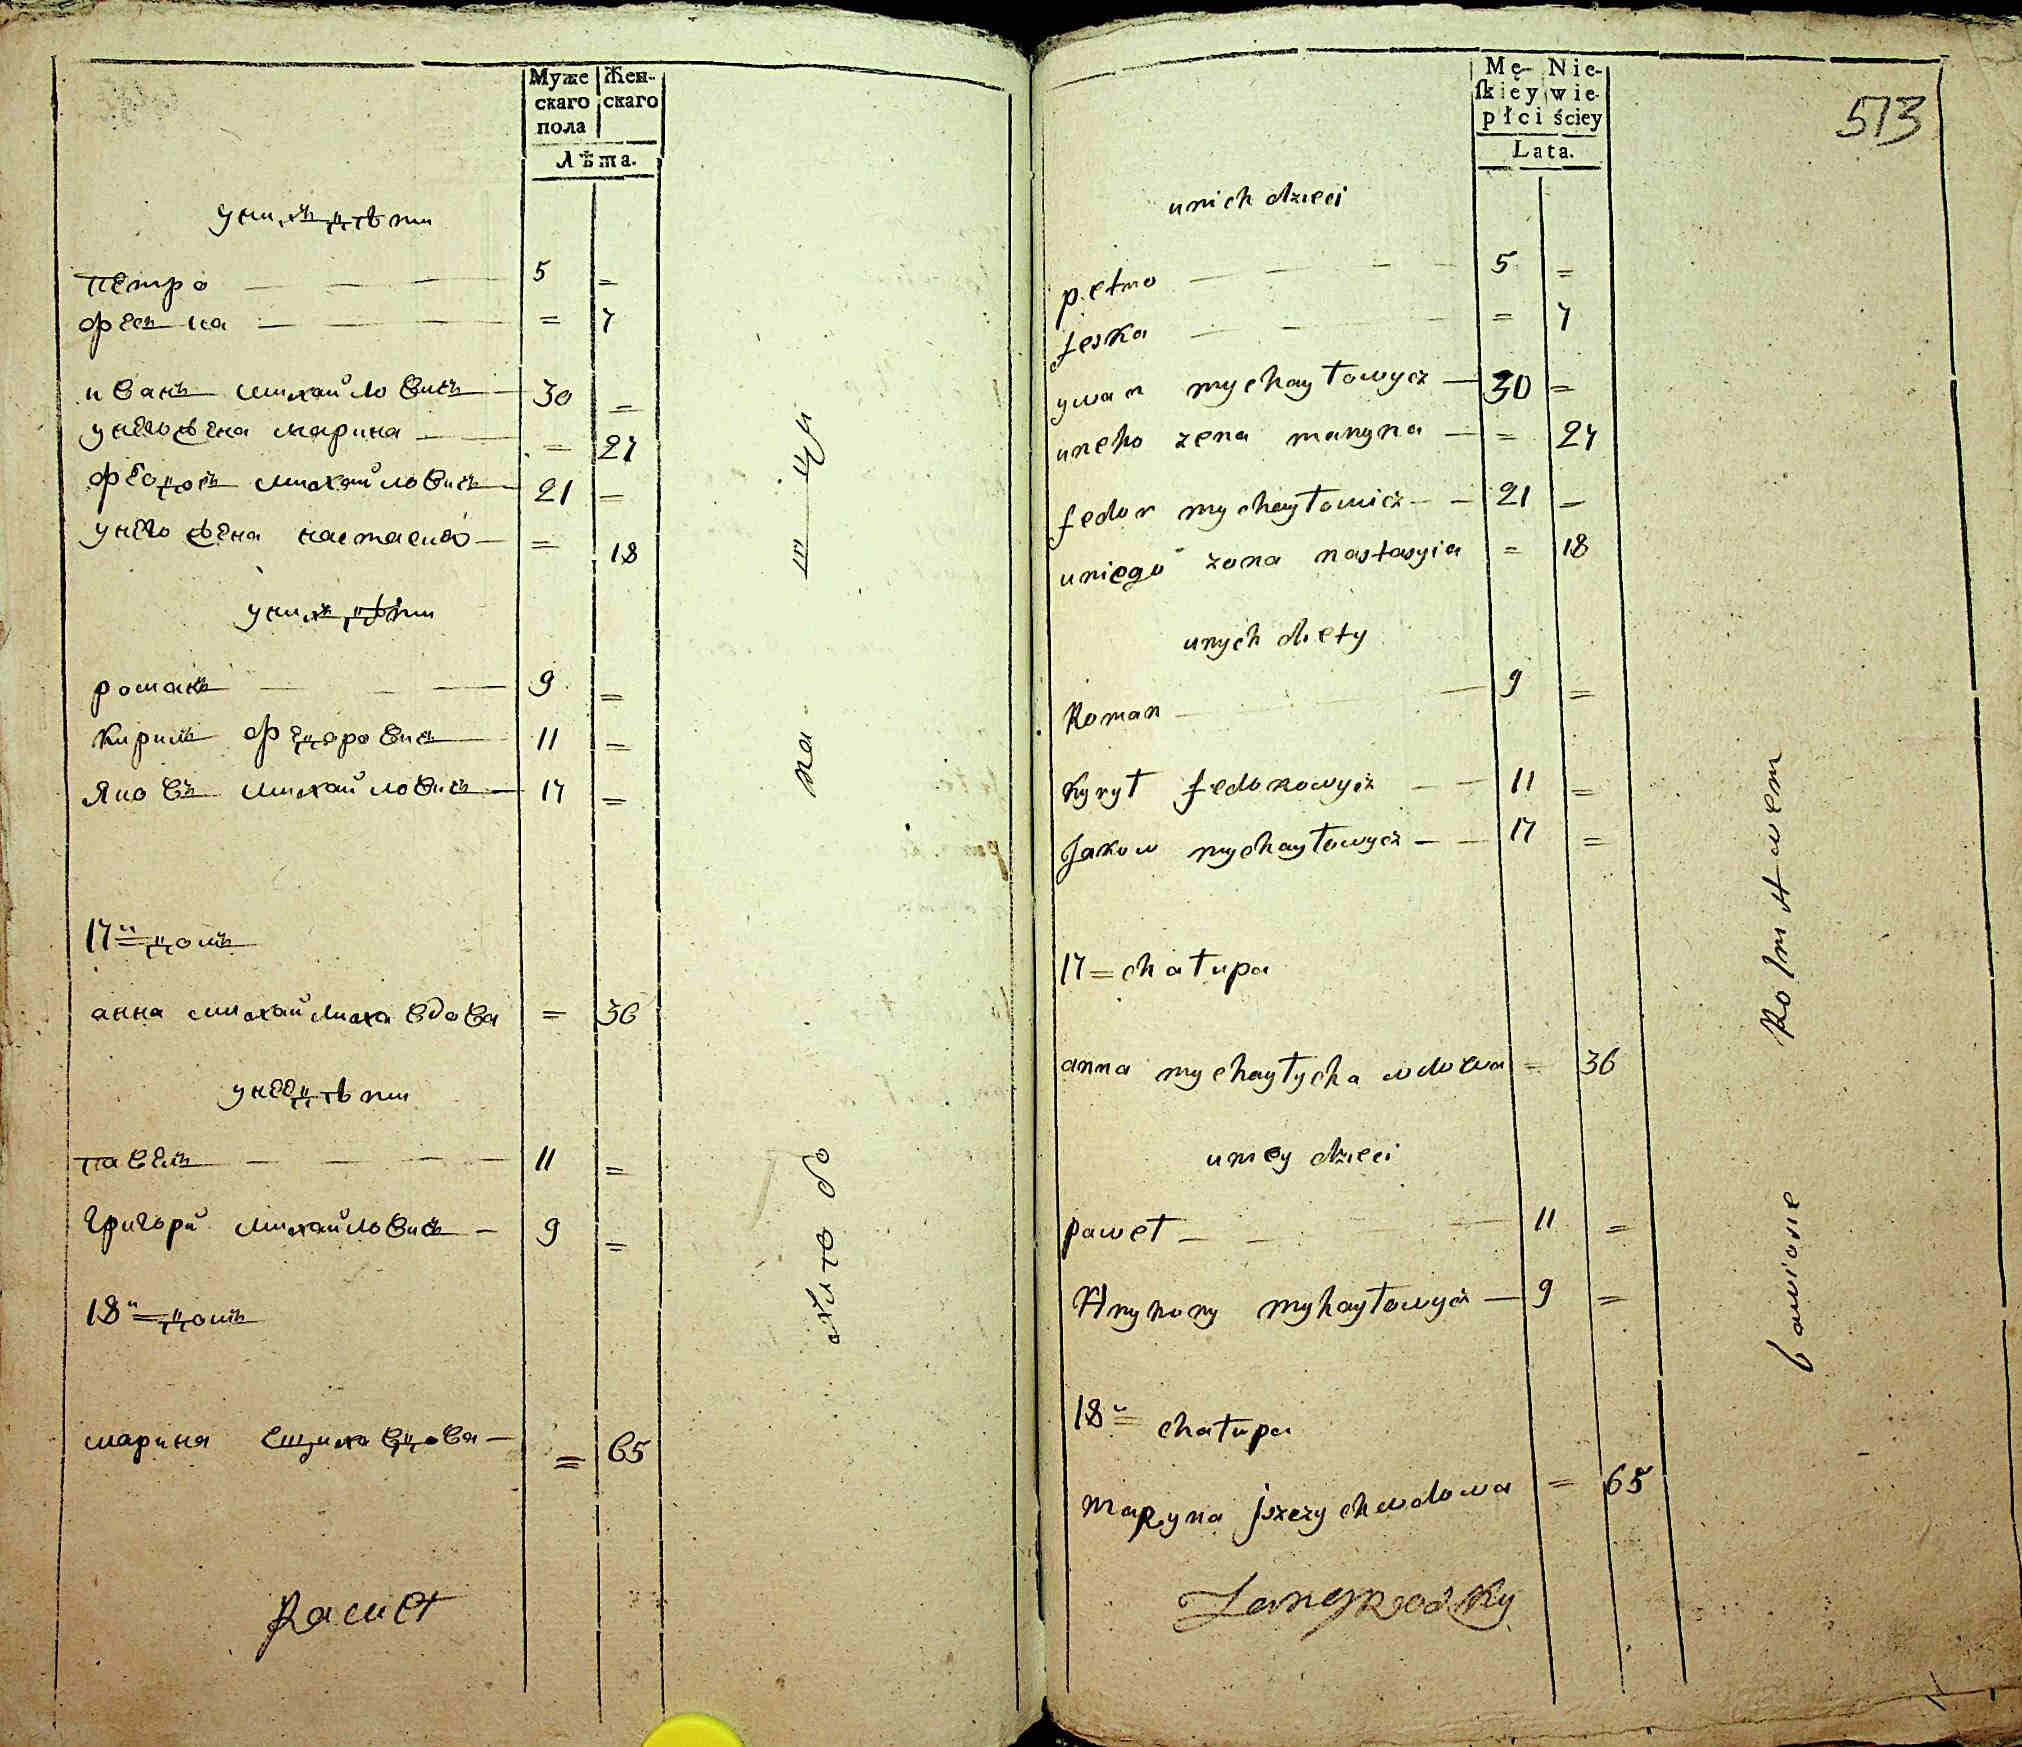 Муже Жен-
скаго скаго
пола
Лѣта.
унихъ дѣти
петро 5 =
феска = 7
иванъ михайловичъ 30 =
унего жена марина = 27
феодоръ михайловичъ 21 =
унего жена настасия = 18
унихъ дѣти
романъ 9 =
кирилъ федоровичъ 11 =
яковъ михайловичъ 17 =
17й=домъ
анна михайлиха вдова = 36
унее дѣти
павелъ 11 =
григорий михайловичъ 9 =
18й=домъ
марина ещиха вдова = 65
Mę- Nie-
ſkiey wie-
płci ściey
Lata.
513
unich dzieci
petro 5 =
feska = 7
ywan mychayłowycz 30 =
uneho zena maryna = 27
fedor mychayłowicz 21 =
uniego zona nastasyia = 18
unych diety
Roman 9 =
Kyrył fedorowycz 11 =
Jakow mychayłowycz 17 =
17=chałupa
anna mychayłycha wdowa = 36
uniey dzieci
paweł 11 =
Hryhory myhayłowycz 9 =
18й= chałupa
Maryna jszczycha wdowa = 65